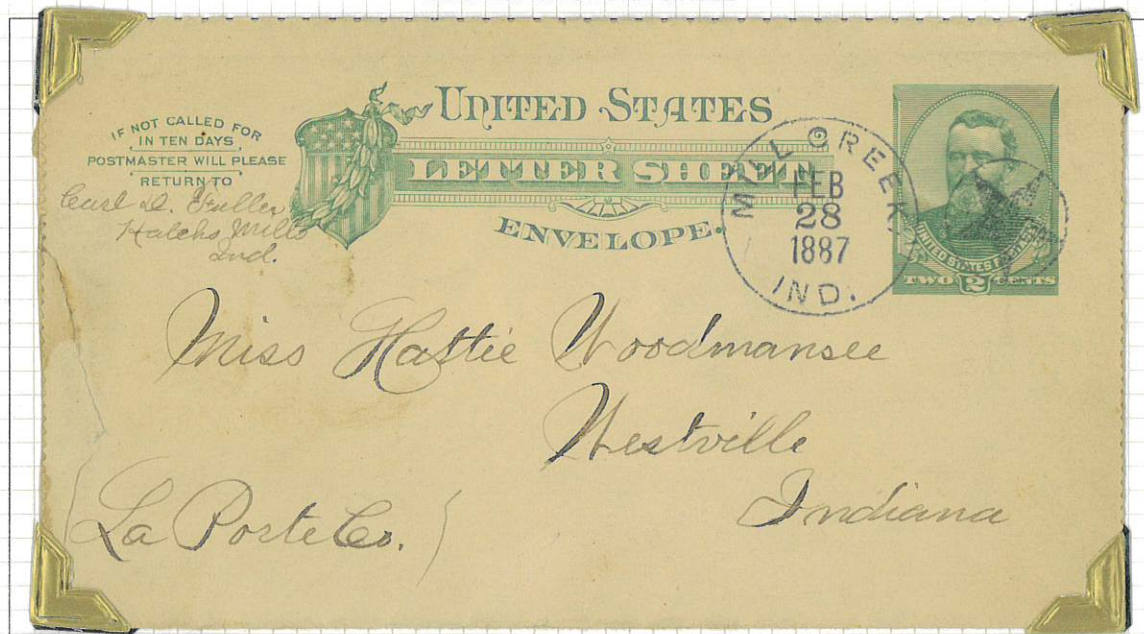 IF NOT CALLED FOR
IN TEN DAYS
POSTMASTER WILL PLEASE
RETURN TO
D. Fuller
Mills
Ind.
UNITED STATES
LETTER SHEET
ENVELOPE.
MILL CREEK,
FEB
28
1887
IND.
UNITED STATES
TWO 2 CENTS
Miss Hattie Woodmansee
Westville
Indiana
(La Porte Co.)